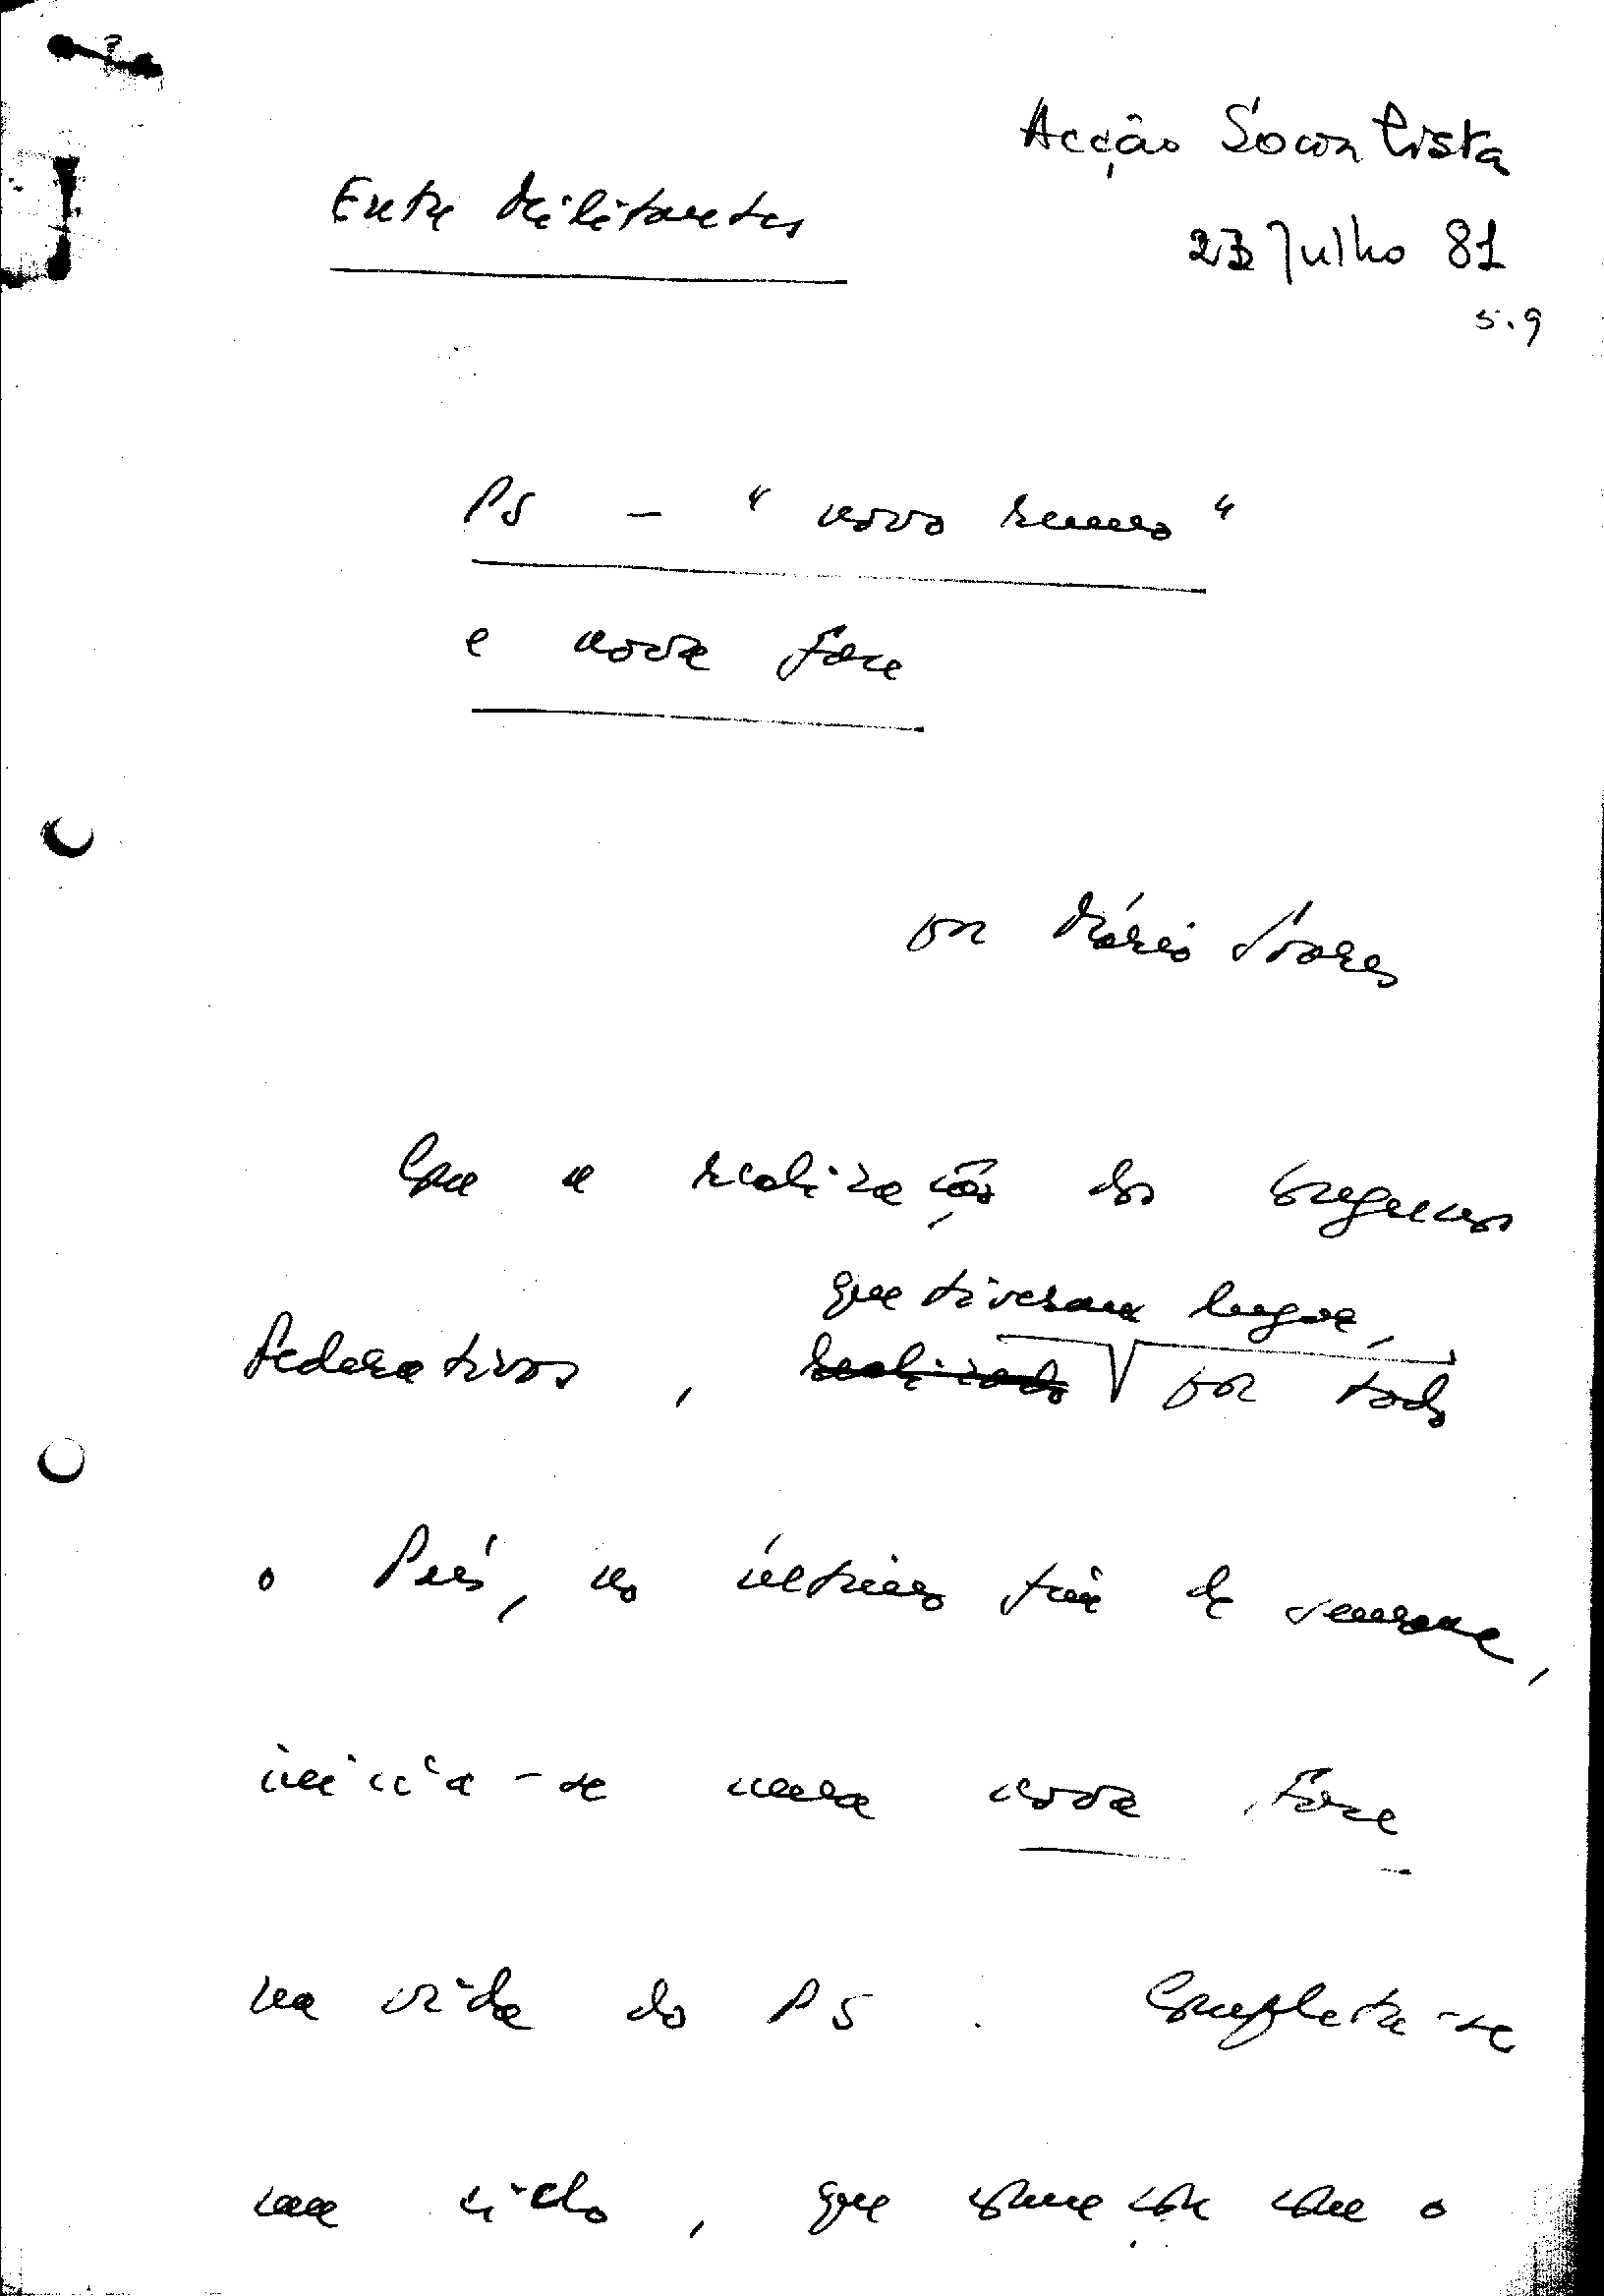 Acção Socialista
Entre Militantes
23 Julho 81
5.9
PS - "novo rumo"
e nova fase
por Mário Soares
Com a realização dos Congressos
que tiveram lugar,
Federativos, realizados por todo
o País, no último fim de semana,
inicia-se uma nova Fase
na vida do PS. Completa-se
um ciclo, que começou com o